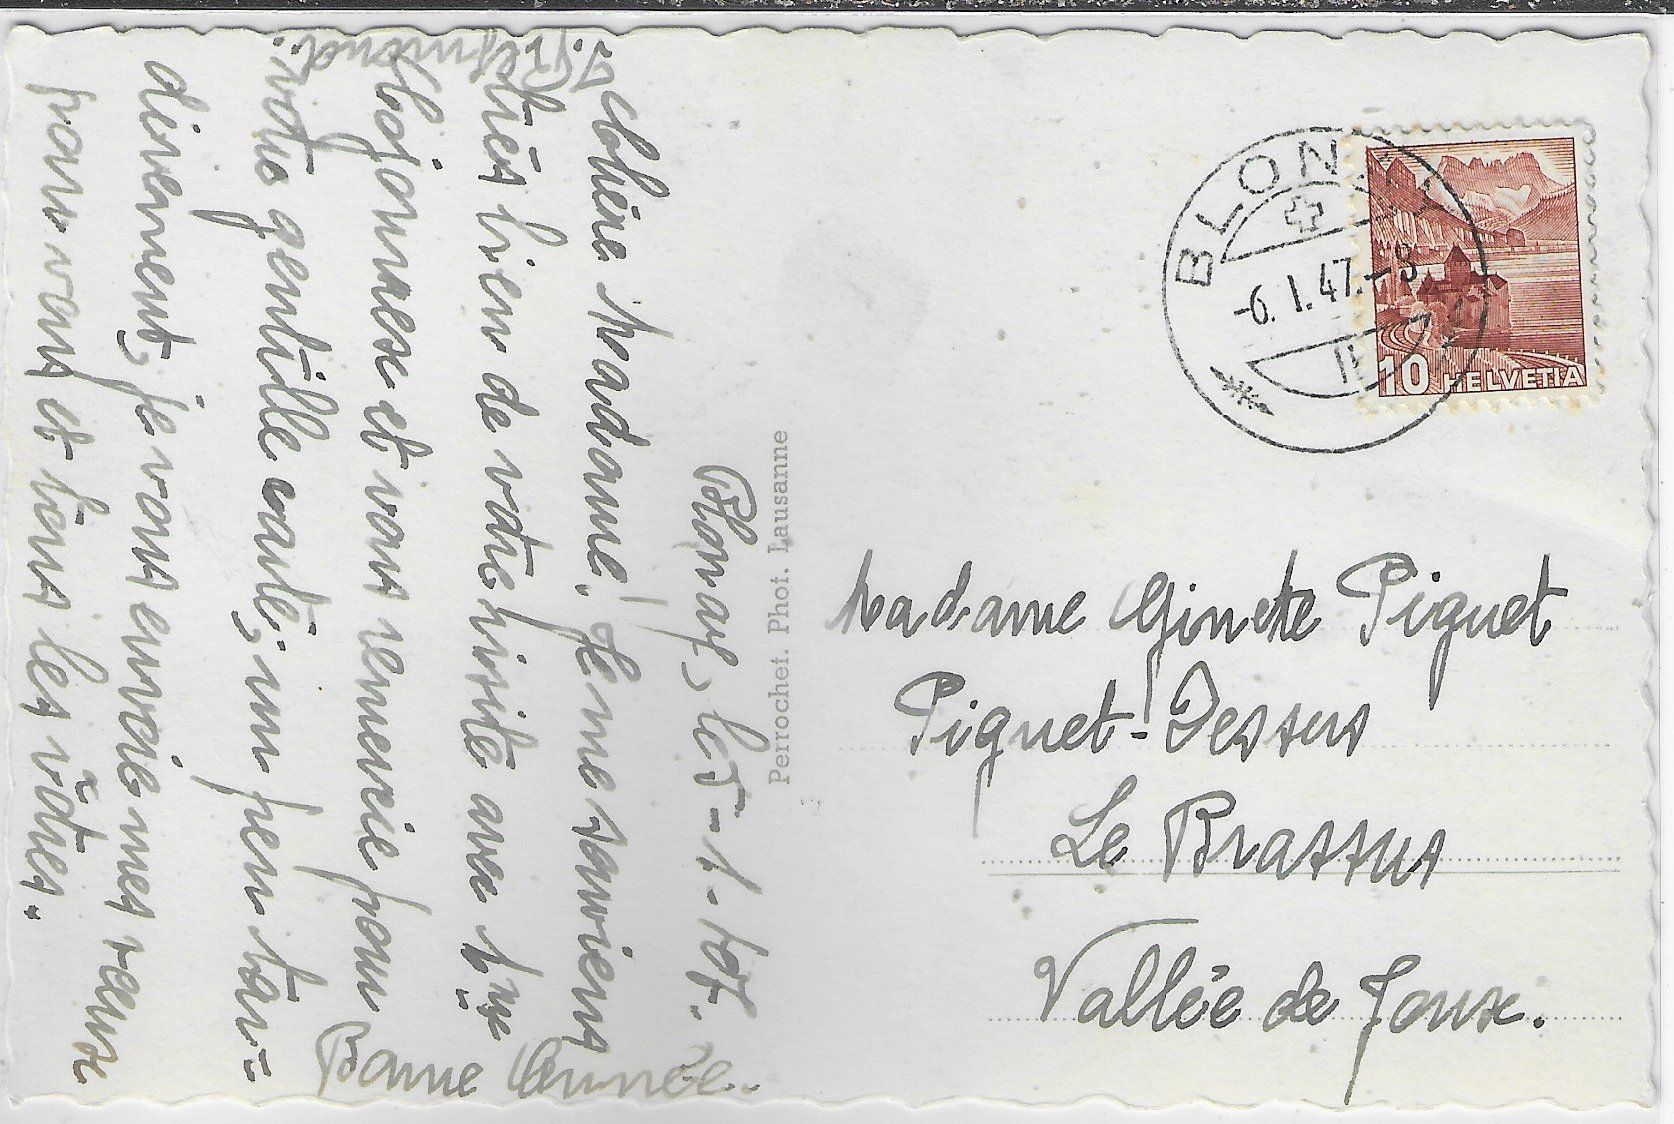 Blonay, le 5-1-47.
Chère Madame. Je me souviens
très bien de votre visite avec Mme
Mojonnex et vous remercie pour
votre gentille carte; un peu tar=
divement, je vous envoie mes vœux
pour vous et tous les vôtres.
Bonne Année.
Perrochet. Phot. Lausanne
BLONAY
-6. 1. 47.-8
10 HELVETIA
Madame Ginette Piguet
Piguet-Dessus
Le Brassus
Vallée de Joux.